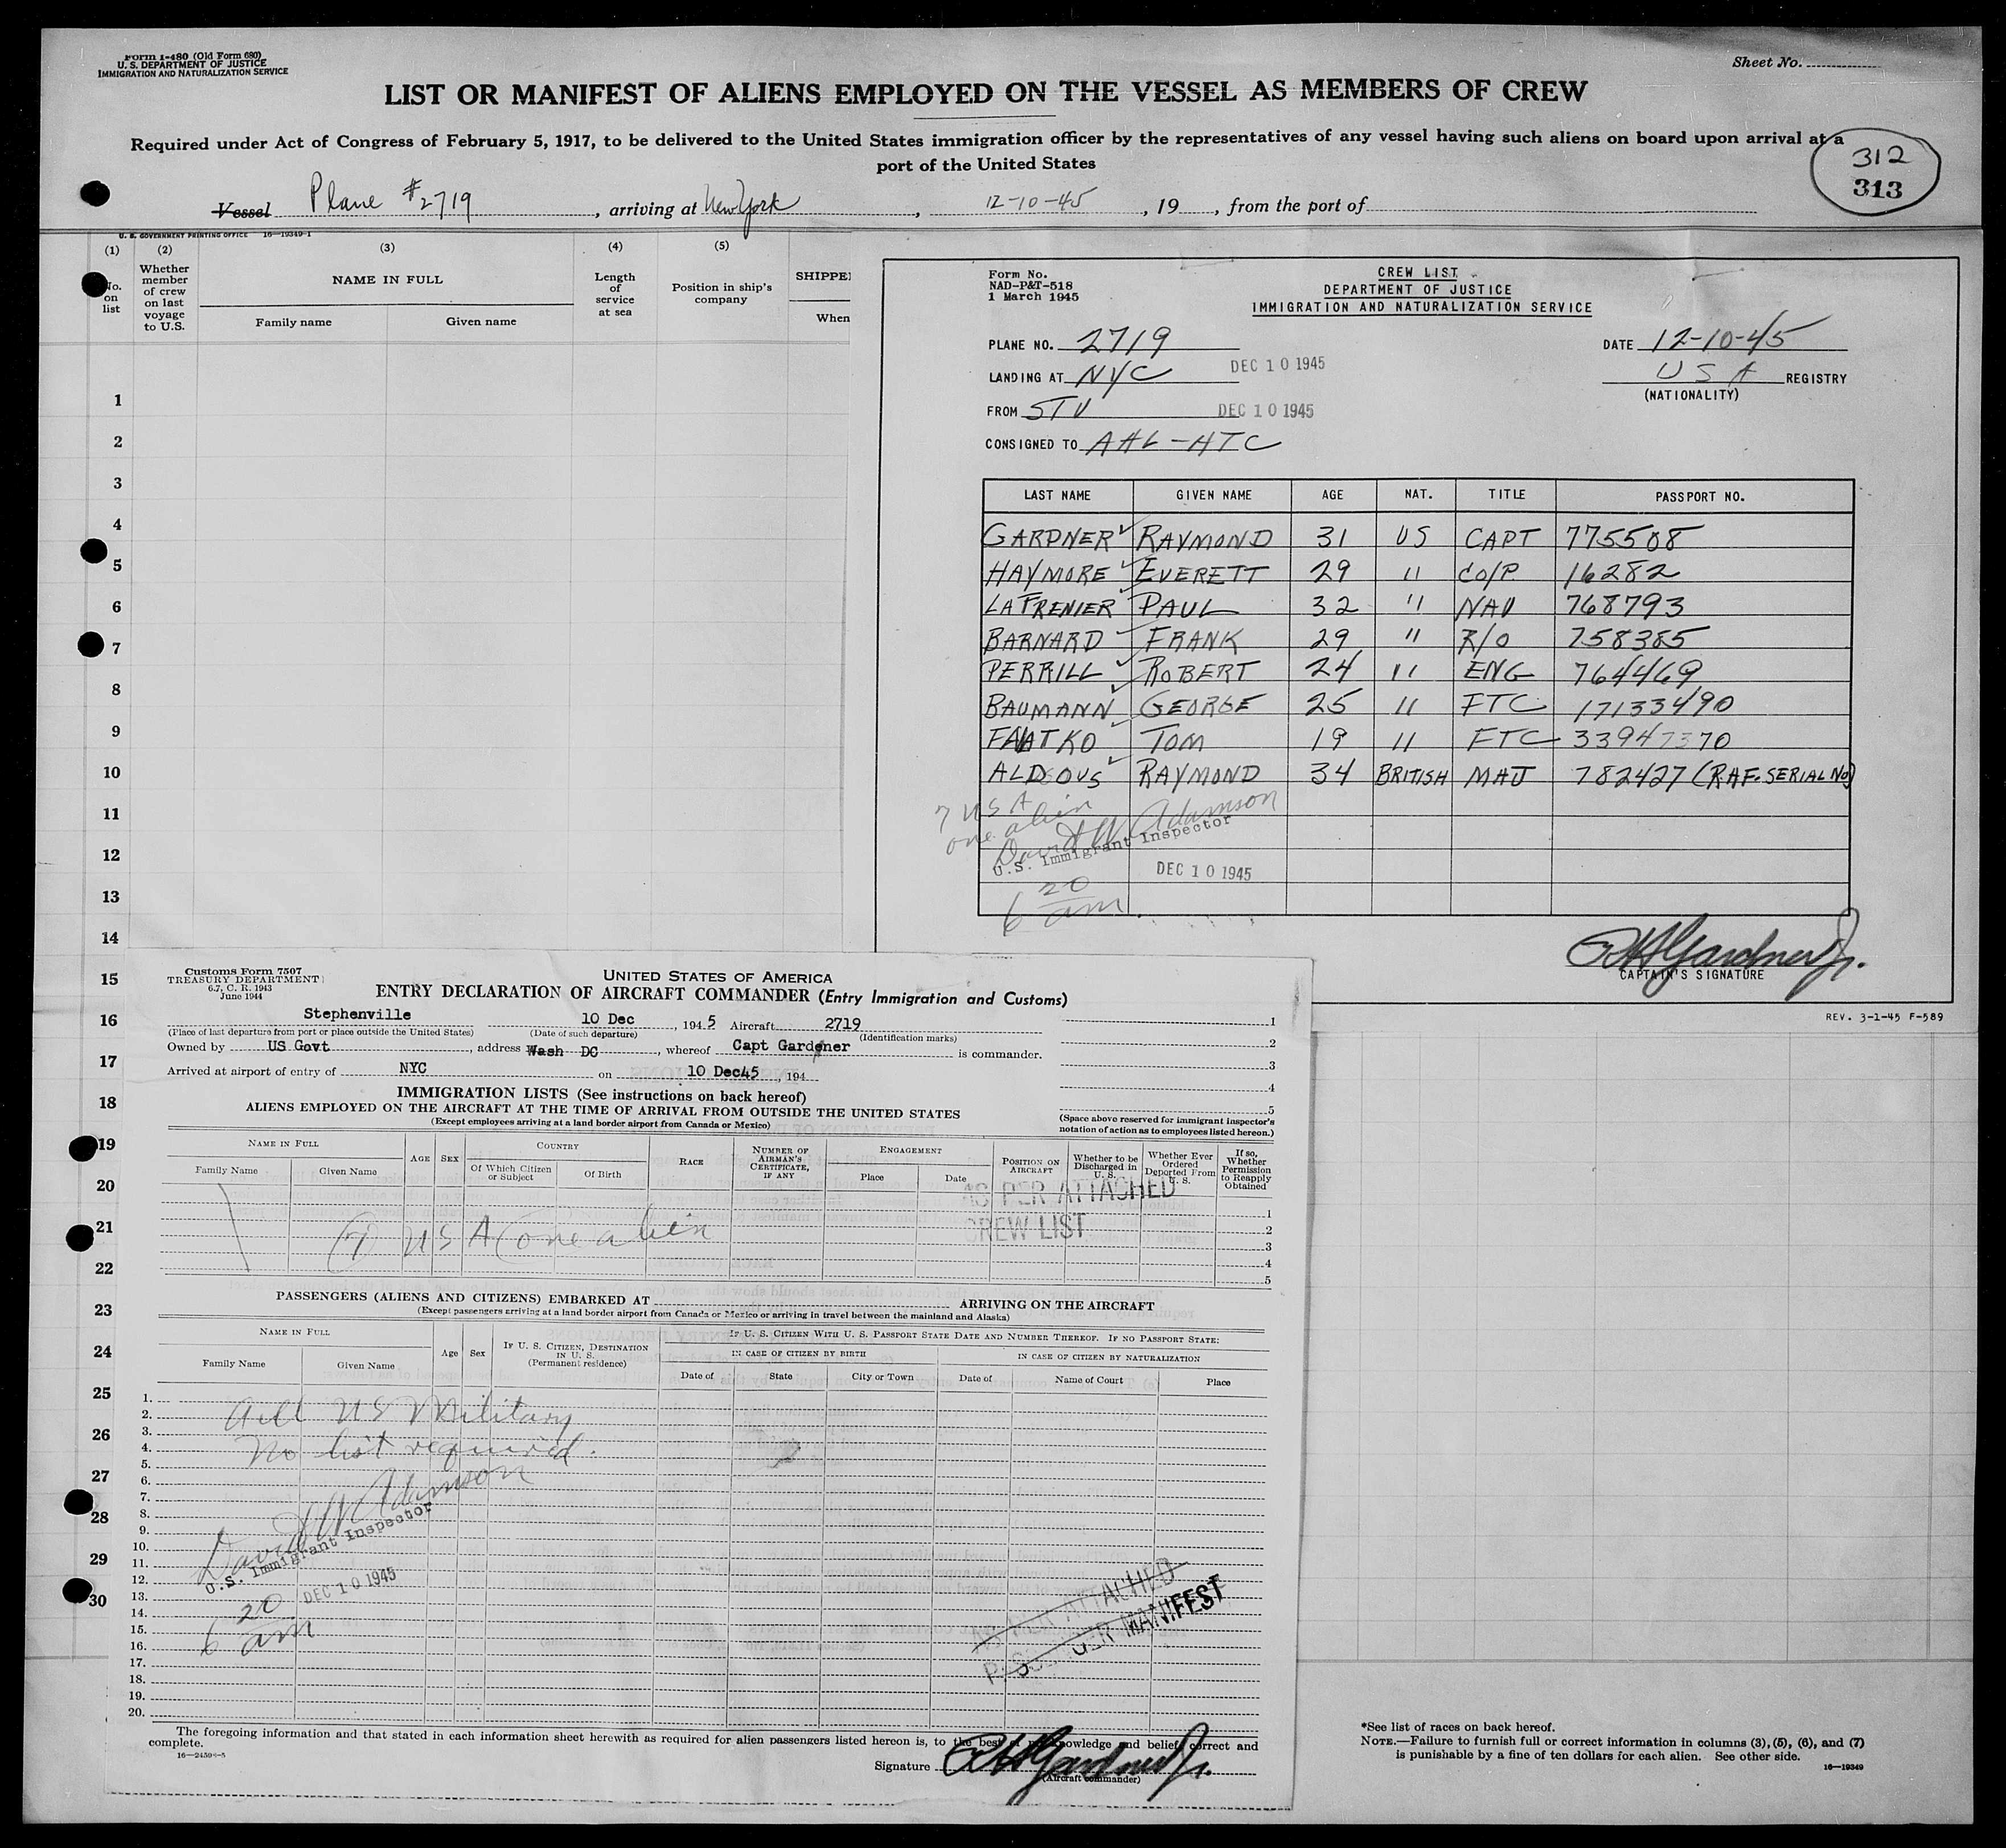 Form I-480 (Old Form 680)
U. S. DEPARTMENT OF JUSTICE
IMMIGRATION AND NATURALIZATION SERVICE
Sheet No.
LIST OR MANIFEST OF ALIENS EMPLOYED ON THE VESSEL AS MEMBERS OF CREW
Required under Act of Congress of February 5, 1917, to be delivered to the United States immigration officer by the representatives of any vessel having such aliens on board upon arrival at a
port of the United States
312
313
Vessel Plane #2719, arriving at New York, 12-10-45, 19, from the port of
U. S. GOVERNMENT PRINTING OFFICE 16—19349-1
(1) (2) (3) (4) (5)
No. on list
Whether member of crew on last voyage to U.S.
NAME IN FULL
Family name Given name
Length of service at sea
Position in ship's company
SHIPPE
When
1
2
3
4
5
6
7
8
9
10
11
12
13
14
15
16
17
18
19
20
21
22
23
24
25
26
27
28
29
30
Form No.
NAD-P&T-518
1 March 1945
CREW LIST
DEPARTMENT OF JUSTICE
IMMIGRATION AND NATURALIZATION SERVICE
PLANE NO. 2719 DATE 12-10-45
LANDING AT NYC DEC 10 1945 USA REGISTRY
(NATIONALITY)
FROM STV DEC 10 1945
CONSIGNED TO AHL-HTC
LAST NAME GIVEN NAME AGE NAT. TITLE PASSPORT NO.
GARDNER RAYMOND 31 US CAPT 775508
HAYMORE EVERETT 29 " CO/P 16282
LAFRENIER PAUL 32 " NAV 768793
BARNARD FRANK 29 " R/O 758385
PERRILL ROBERT 24 " ENG 764469
BAUMANN GEORGE 25 " FTC 17133490
TOM 19 " FTC 33947370
ALDEOUS RAYMOND 34 BRITISH MAJ 782427 (RAF. SERIAL NO)
7 USA
one alien
David W Adamson
U.S. Immigrant Inspector
DEC 10 1945
6 20 am
R H Gardner Jr.
CAPTAIN'S SIGNATURE
REV. 3-1-45 F-589
Customs Form 7507
TREASURY DEPARTMENT
6.7, C. R. 1943
June 1944
UNITED STATES OF AMERICA
ENTRY DECLARATION OF AIRCRAFT COMMANDER (Entry Immigration and Customs)
Stephenville 10 Dec, 1945 Aircraft 2719
(Place of last departure from port or place outside the United States) (Date of such departure) (Identification marks)
Owned by US Govt, address Wash DC, whereof Capt Gardener is commander.
Arrived at airport of entry of NYC on 10 Dec45, 194
1
2
3
4
5
(Space above reserved for immigrant inspector's
notation of action as to employees listed hereon.)
IMMIGRATION LISTS (See instructions on back hereof)
ALIENS EMPLOYED ON THE AIRCRAFT AT THE TIME OF ARRIVAL FROM OUTSIDE THE UNITED STATES
(Except employees arriving at a land border airport from Canada or Mexico)
NAME IN FULL
Family Name Given Name
AGE SEX
COUNTRY
Of Which Citizen or Subject Of Birth
RACE
NUMBER OF AIRMAN'S CERTIFICATE, IF ANY
ENGAGEMENT
Place Date
POSITION ON AIRCRAFT
Whether to be Discharged in U. S.
Whether Ever Ordered Deported From U. S.
If so, Whether Permission to Reapply Obtained
AS PER ATTACHED
CREW LIST
(7) USA (one alien
1
2
3
4
5
PASSENGERS (ALIENS AND CITIZENS) EMBARKED AT ARRIVING ON THE AIRCRAFT
(Except passengers arriving at a land border airport from Canada or Mexico or arriving in travel between the mainland and Alaska)
NAME IN FULL
Family Name Given Name
Age Sex
IF U. S. CITIZEN, DESTINATION IN U. S. (Permanent residence)
IF U. S. CITIZEN WITH U. S. PASSPORT STATE DATE AND NUMBER THEREOF. IF NO PASSPORT STATE:
IN CASE OF CITIZEN BY BIRTH IN CASE OF CITIZEN BY NATURALIZATION
Date of State City or Town Date of Name of Court Place
1.
2.
3.
4.
5.
6.
7.
8.
9.
10.
11.
12.
13.
14.
15.
16.
17.
18.
19.
20.
All US Military
No list required.
David W Adamson
U.S. Immigrant Inspector
DEC 10 1945
6 20 am
AS PER ATTACHED
PASSENGER MANIFEST
The foregoing information and that stated in each information sheet herewith as required for alien passengers listed hereon is, to the best of my knowledge and belief, correct and
complete.
Signature R H Gardner Jr.
(Aircraft commander)
*See list of races on back hereof.
NOTE.—Failure to furnish full or correct information in columns (3), (5), (6), and (7)
is punishable by a fine of ten dollars for each alien. See other side.
16—19349